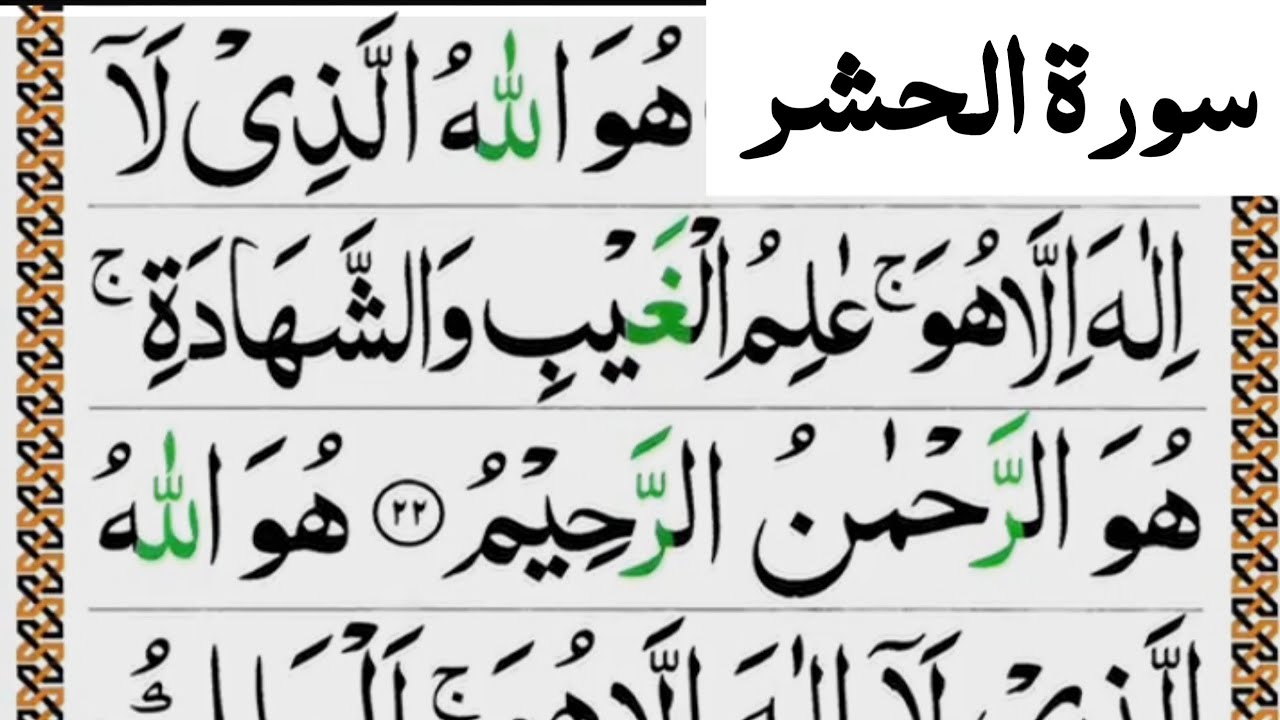 سورة الحشر
هُوَ اللّٰهُ الَّذِىْ لَآ
اِلٰهَ اِلَّا هُوَ ۚ عٰلِمُ الْغَيْبِ وَالشَّهَادَةِ ۚ
هُوَ الرَّحْمٰنُ الرَّحِيْمُ ﴿۲۲﴾ هُوَ اللّٰهُ
الَّذِىْ لَآ اِلٰهَ اِلَّا هُوَ ۚ اَلْمَلِكُ